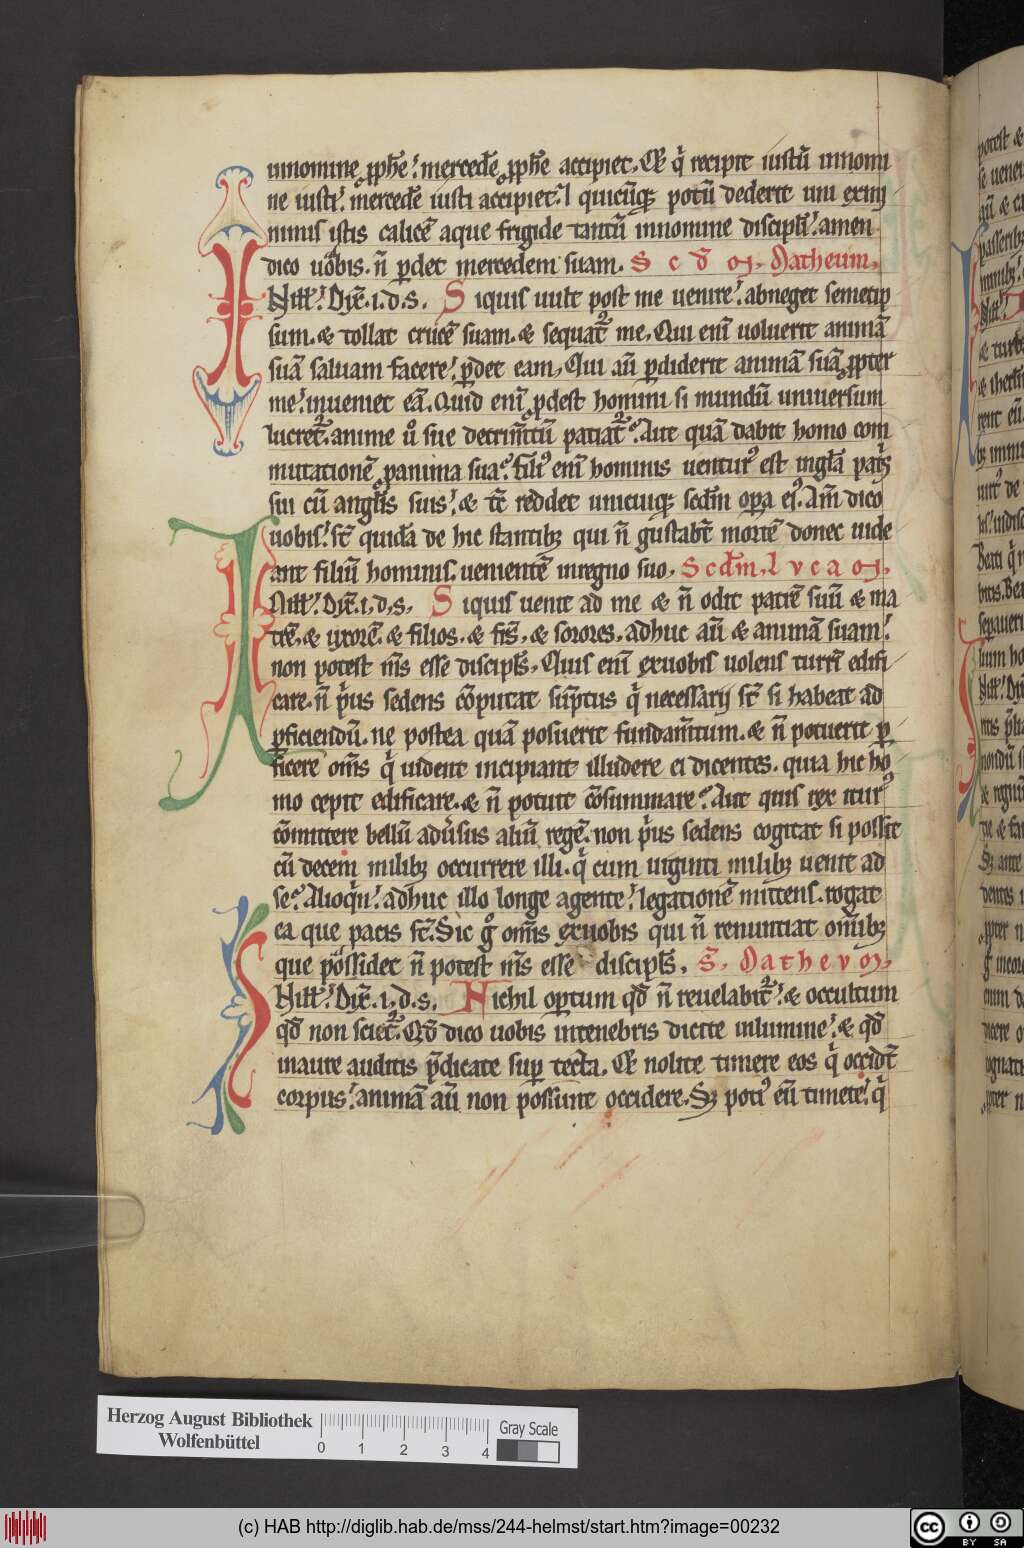 innomine ꝓph̄e. mercedē ꝓph̄e accipiet. Et q̇ recipit iustū innomi
ne iusti. mercedē iusti accipiet. l quicūqꝫ potū dederit uni ex mi
nimis istis calicē aque frigide tantū innomine discipłi. amen
dico uobis. n̄ ꝑdet mercedem suam. S c d̄ m. Matheum.
In ill'. Dix̄. i. d. s. Siquis uult post me uenire. abneget semetip
sum. & tollat crucē suam. & sequat᷑ me. Qui eni̅ uoluerit animā
suā saluam facere. ꝑdet eam. Qui aū ꝑdiderit animā suā ꝓpter
me. inueniet eā. Quid eni̅ ꝓdest homini si mundū uniuersum
lucret᷑. anime ů sue detrim̄tū patiat᷑. Aut quā dabit homo com
mutationē ꝓ anima sua. Filiꝰ eni̅ hominis uenturꝰ est inglā pat̄s
sui cū angłis suis. & tc̄ reddet unicuiqꝫ scdm̄ oꝑa eiꝰ. Am̄ dico
uobis. st̄ quidā de hic stantibꝫ qui n̄ gustabt̄ mortē donec uide
ant filiū hominis. uenientē inregno suo. Scdm̄. lucam.
In ill'. Dix̄. i. d. s. Siquis uenit ad me & n̄ odit patrē suū & ma
trē. & uxorē. & filios. & fr̄s. & sorores. adhuc aū & animā suam.
non potest m̄s esse discipłs. Quis eni̅ exuobis uolens turrī edifi
care. n̄ ṗus sedens cōputat sūptus q̇ necessarij st̄ si habeat ad
ꝑficiendū. ne postea quā posuerit fundam̄tum. & n̄ potuerit ꝑ
ficere om̄s q̇ uident incipiant illudere ei dicentes. quia hic ho
mo cepit edificare. & n̄ potuit cōsummare. Aut quis rex iturꝰ
cōmittere bellū adūsus aliū regē. non ṗus sedens cogitat si possit
cū decem milibꝫ occurrere illi. q̇ cum uiginti milibꝫ uenit ad
se. Alioq̇n. adhuc illo longe agente. legationē mittens. rogat
ea que pacis st̄. Sic g̊ om̄s exuobis qui n̄ renuntiat om̄ibꝫ
que possidet n̄ potest m̄s esse discipłs. S̄. Matheum.
In ill'. Dix̄. i. d. s. Nichil opertum qd̄ n̄ reuelabit᷑. & occultum
qd̄ non sciet᷑. Qd̄ dico uobis intenebris dicite inlumine. & qd̄
inaure auditis p̄dicate suꝑ tecta. Et nolite timere eos q̇ occidt̄
corpus. animā aū non possunt occidere. Sꝫ potiꝰ eū timete. q̇
Herzog August Bibliothek
Wolfenbüttel
0 1 2 3 4
Gray Scale
(c) HAB http://diglib.hab.de/mss/244-helmst/start.htm?image=00232
cc BY SA